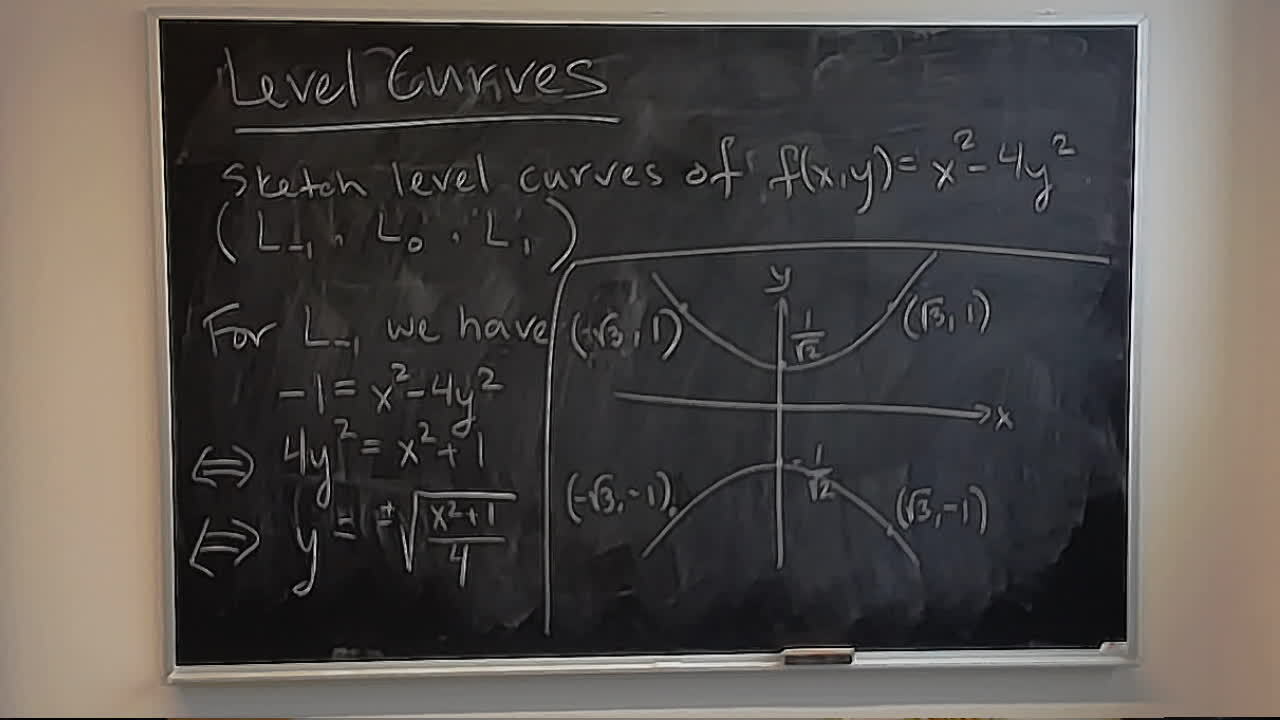 Level Curves
Sketch level curves of f(x,y) = x² - 4y²
(L₋₁, L₀, L₁)
For L₋₁ we have
-1 = x² - 4y²
⇔ 4y² = x² + 1
⇔ y = ±√((x²+1)/4)
y
(-√3, 1)
1/√2
(√3, 1)
x
(-√3, -1)
-1/√2
(√3, -1)